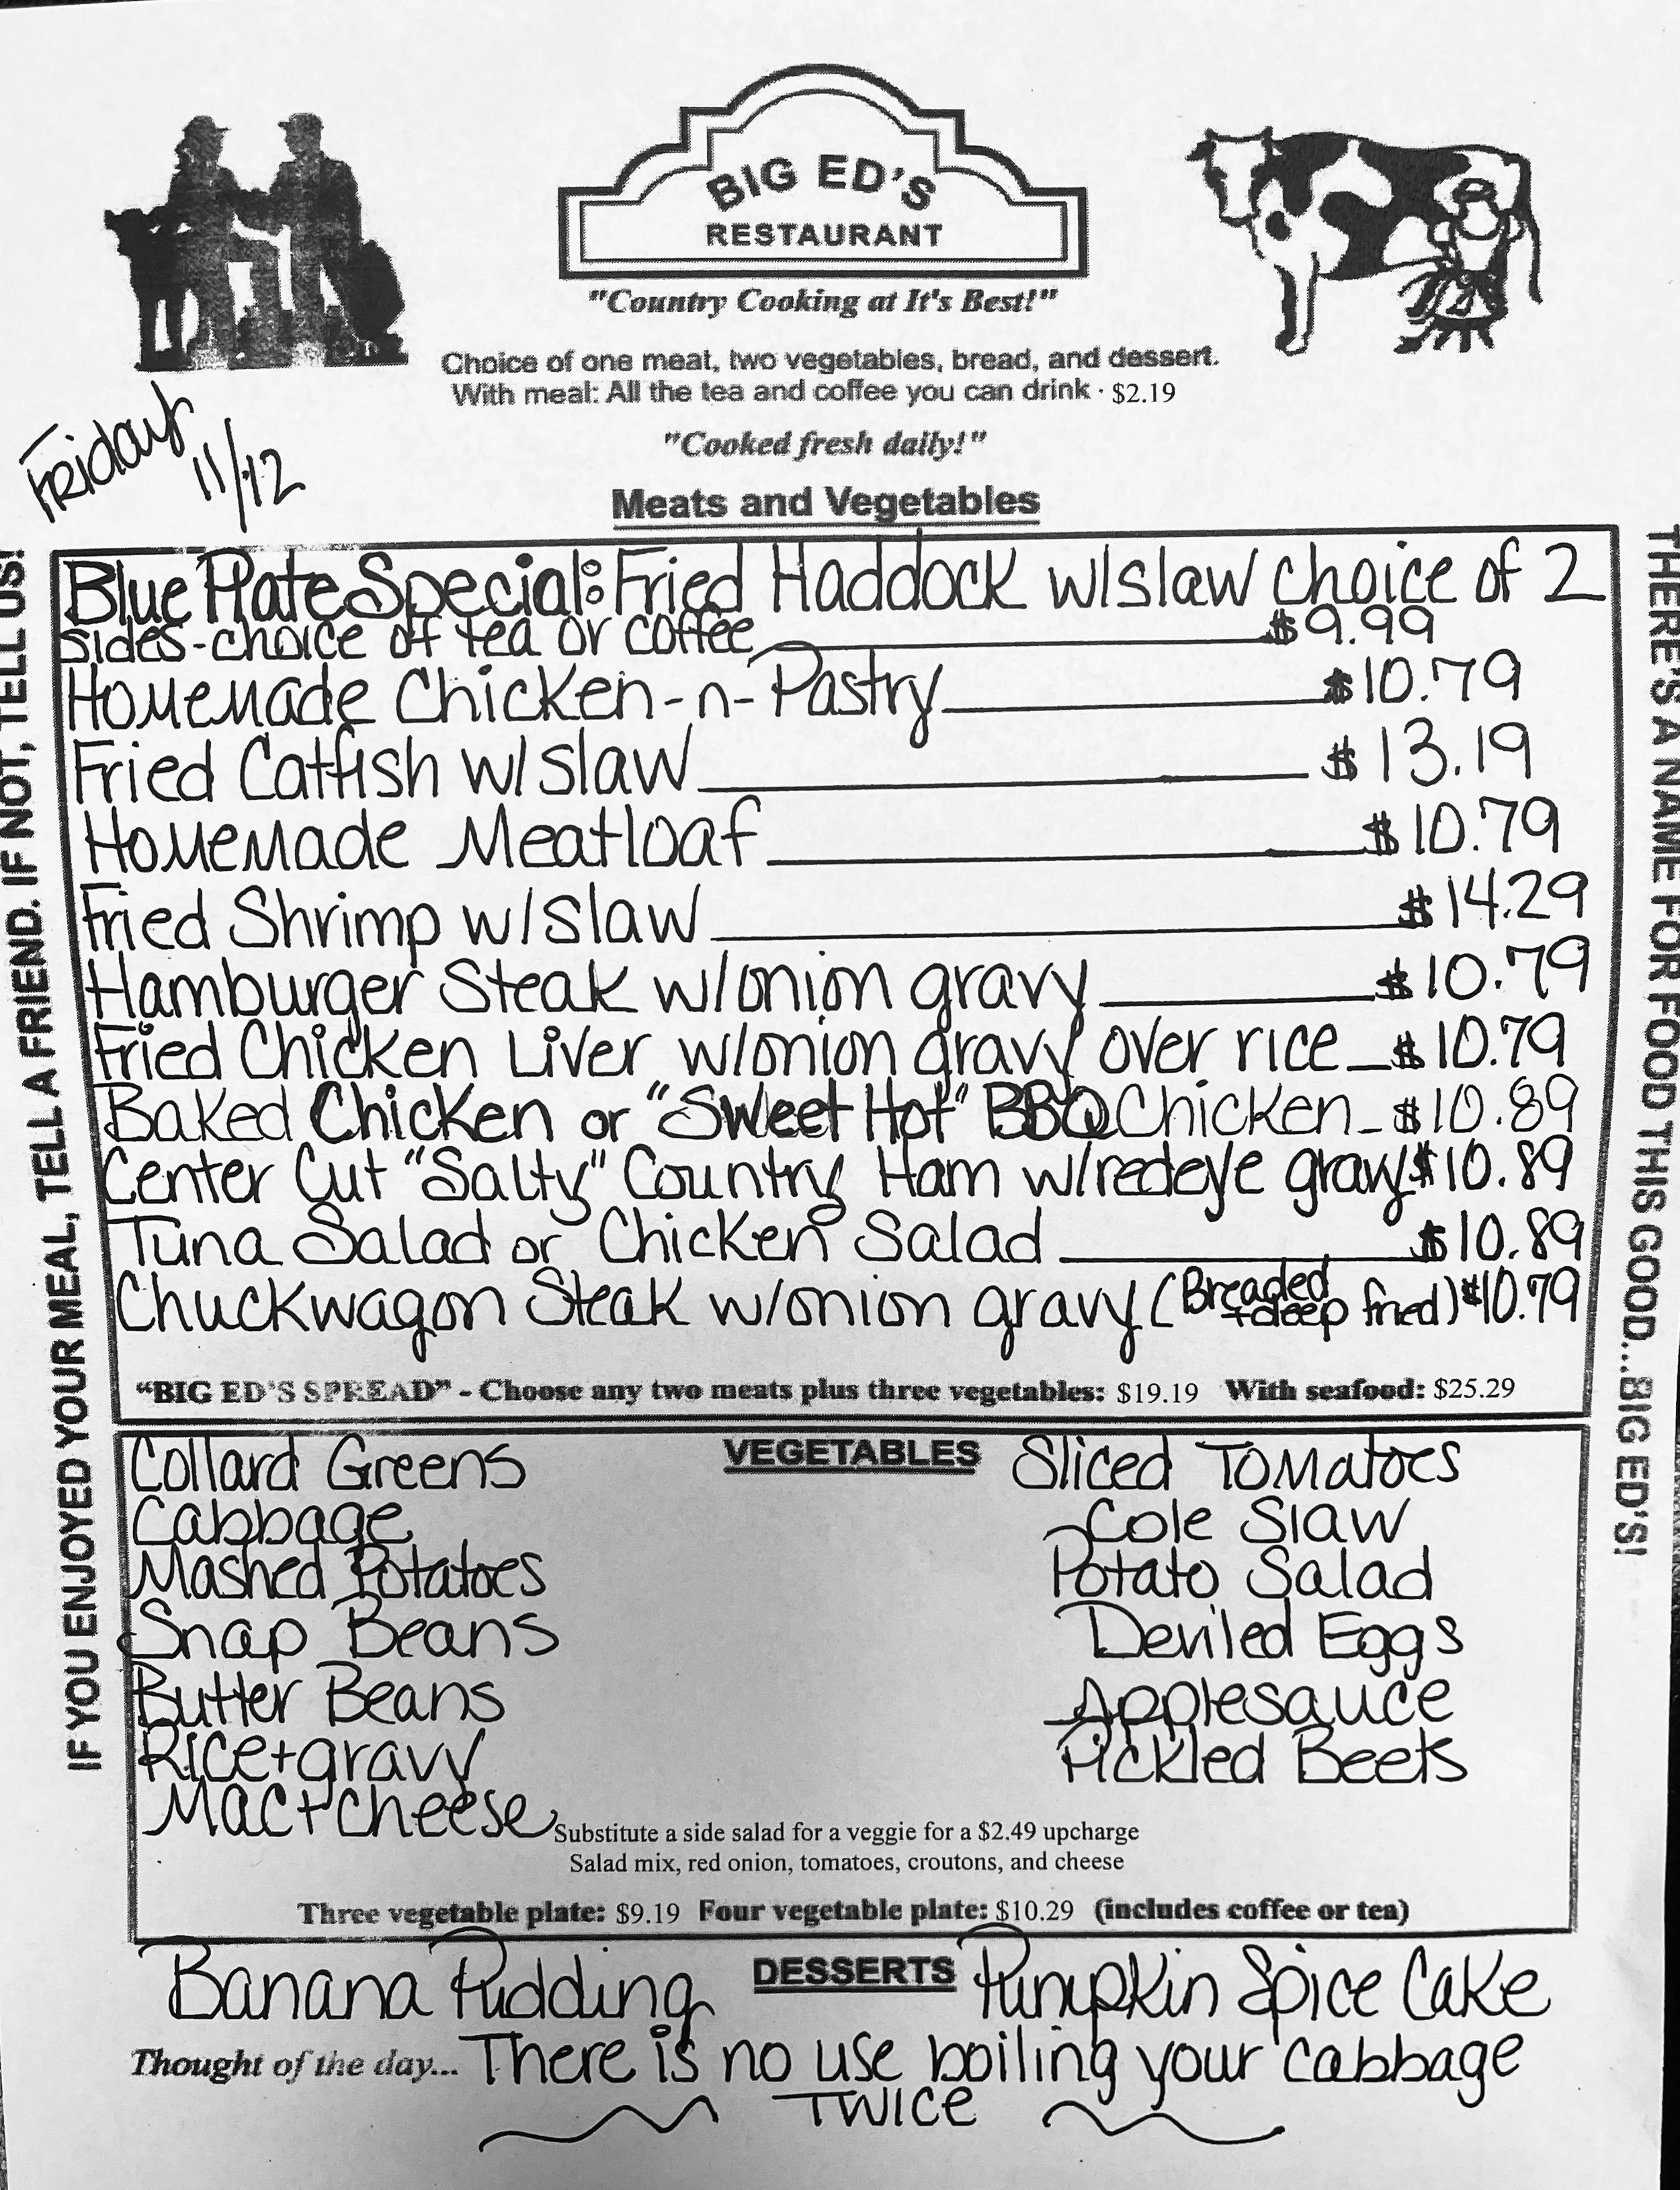 BIG ED'S
RESTAURANT
"Country Cooking at It's Best!"
Choice of one meat, two vegetables, bread, and dessert.
With meal: All the tea and coffee you can drink · $2.19
"Cooked fresh daily!"
Friday
11/12
Meats and Vegetables
Blue Plate Special: Fried Haddock w/slaw choice of 2
sides-choice of tea or coffee $9.99
Homemade Chicken-n-Pastry $10.79
Fried Catfish w/slaw $13.19
Homemade Meatloaf $10.79
Fried Shrimp w/slaw $14.29
Hamburger Steak w/onion gravy $10.79
Fried Chicken Liver w/onion gravy over rice $10.79
Baked Chicken or "Sweet Hot" BBQ Chicken $10.89
Center Cut "Salty" Country Ham w/redeye gravy $10.89
Tuna Salad or Chicken Salad $10.89
Chuckwagon Steak w/onion gravy (Breaded + deep fried) $10.79
"BIG ED'S SPREAD" - Choose any two meats plus three vegetables: $19.19 With seafood: $25.29
VEGETABLES
Collard Greens
Cabbage
Mashed Potatoes
Snap Beans
Butter Beans
Rice+gravy
Mac+cheese
Sliced Tomatoes
Cole Slaw
Potato Salad
Deviled Eggs
Applesauce
Pickled Beets
Substitute a side salad for a veggie for a $2.49 upcharge
Salad mix, red onion, tomatoes, croutons, and cheese
Three vegetable plate: $9.19 Four vegetable plate: $10.29 (includes coffee or tea)
DESSERTS
Banana Pudding
Pumpkin Spice Cake
Thought of the day... There is no use boiling your cabbage
TWICE
IF YOU ENJOYED YOUR MEAL, TELL A FRIEND. IF NOT, TELL US!
THERE'S A NAME FOR FOOD THIS GOOD...BIG ED'S!